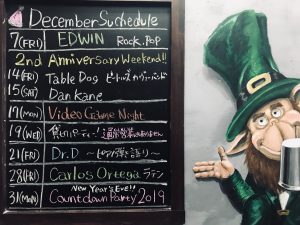 December Suchedule
7(FRI) EDWIN Rock.Pop
2nd Anniversary Weekend!!
14(FRI) Table Dog ビートルズカヴァーバンド
15(SAT) Dankane
17(MON) Video Game Night
19(WED) 貸切パーティー! 通常営業はありません
21(FRI) Dr.D ～ピアノ弾き語り～
28(FRI) Carlos Ortega ラテン
New Year's Eve!!
31(MON) Countdown Party 2019